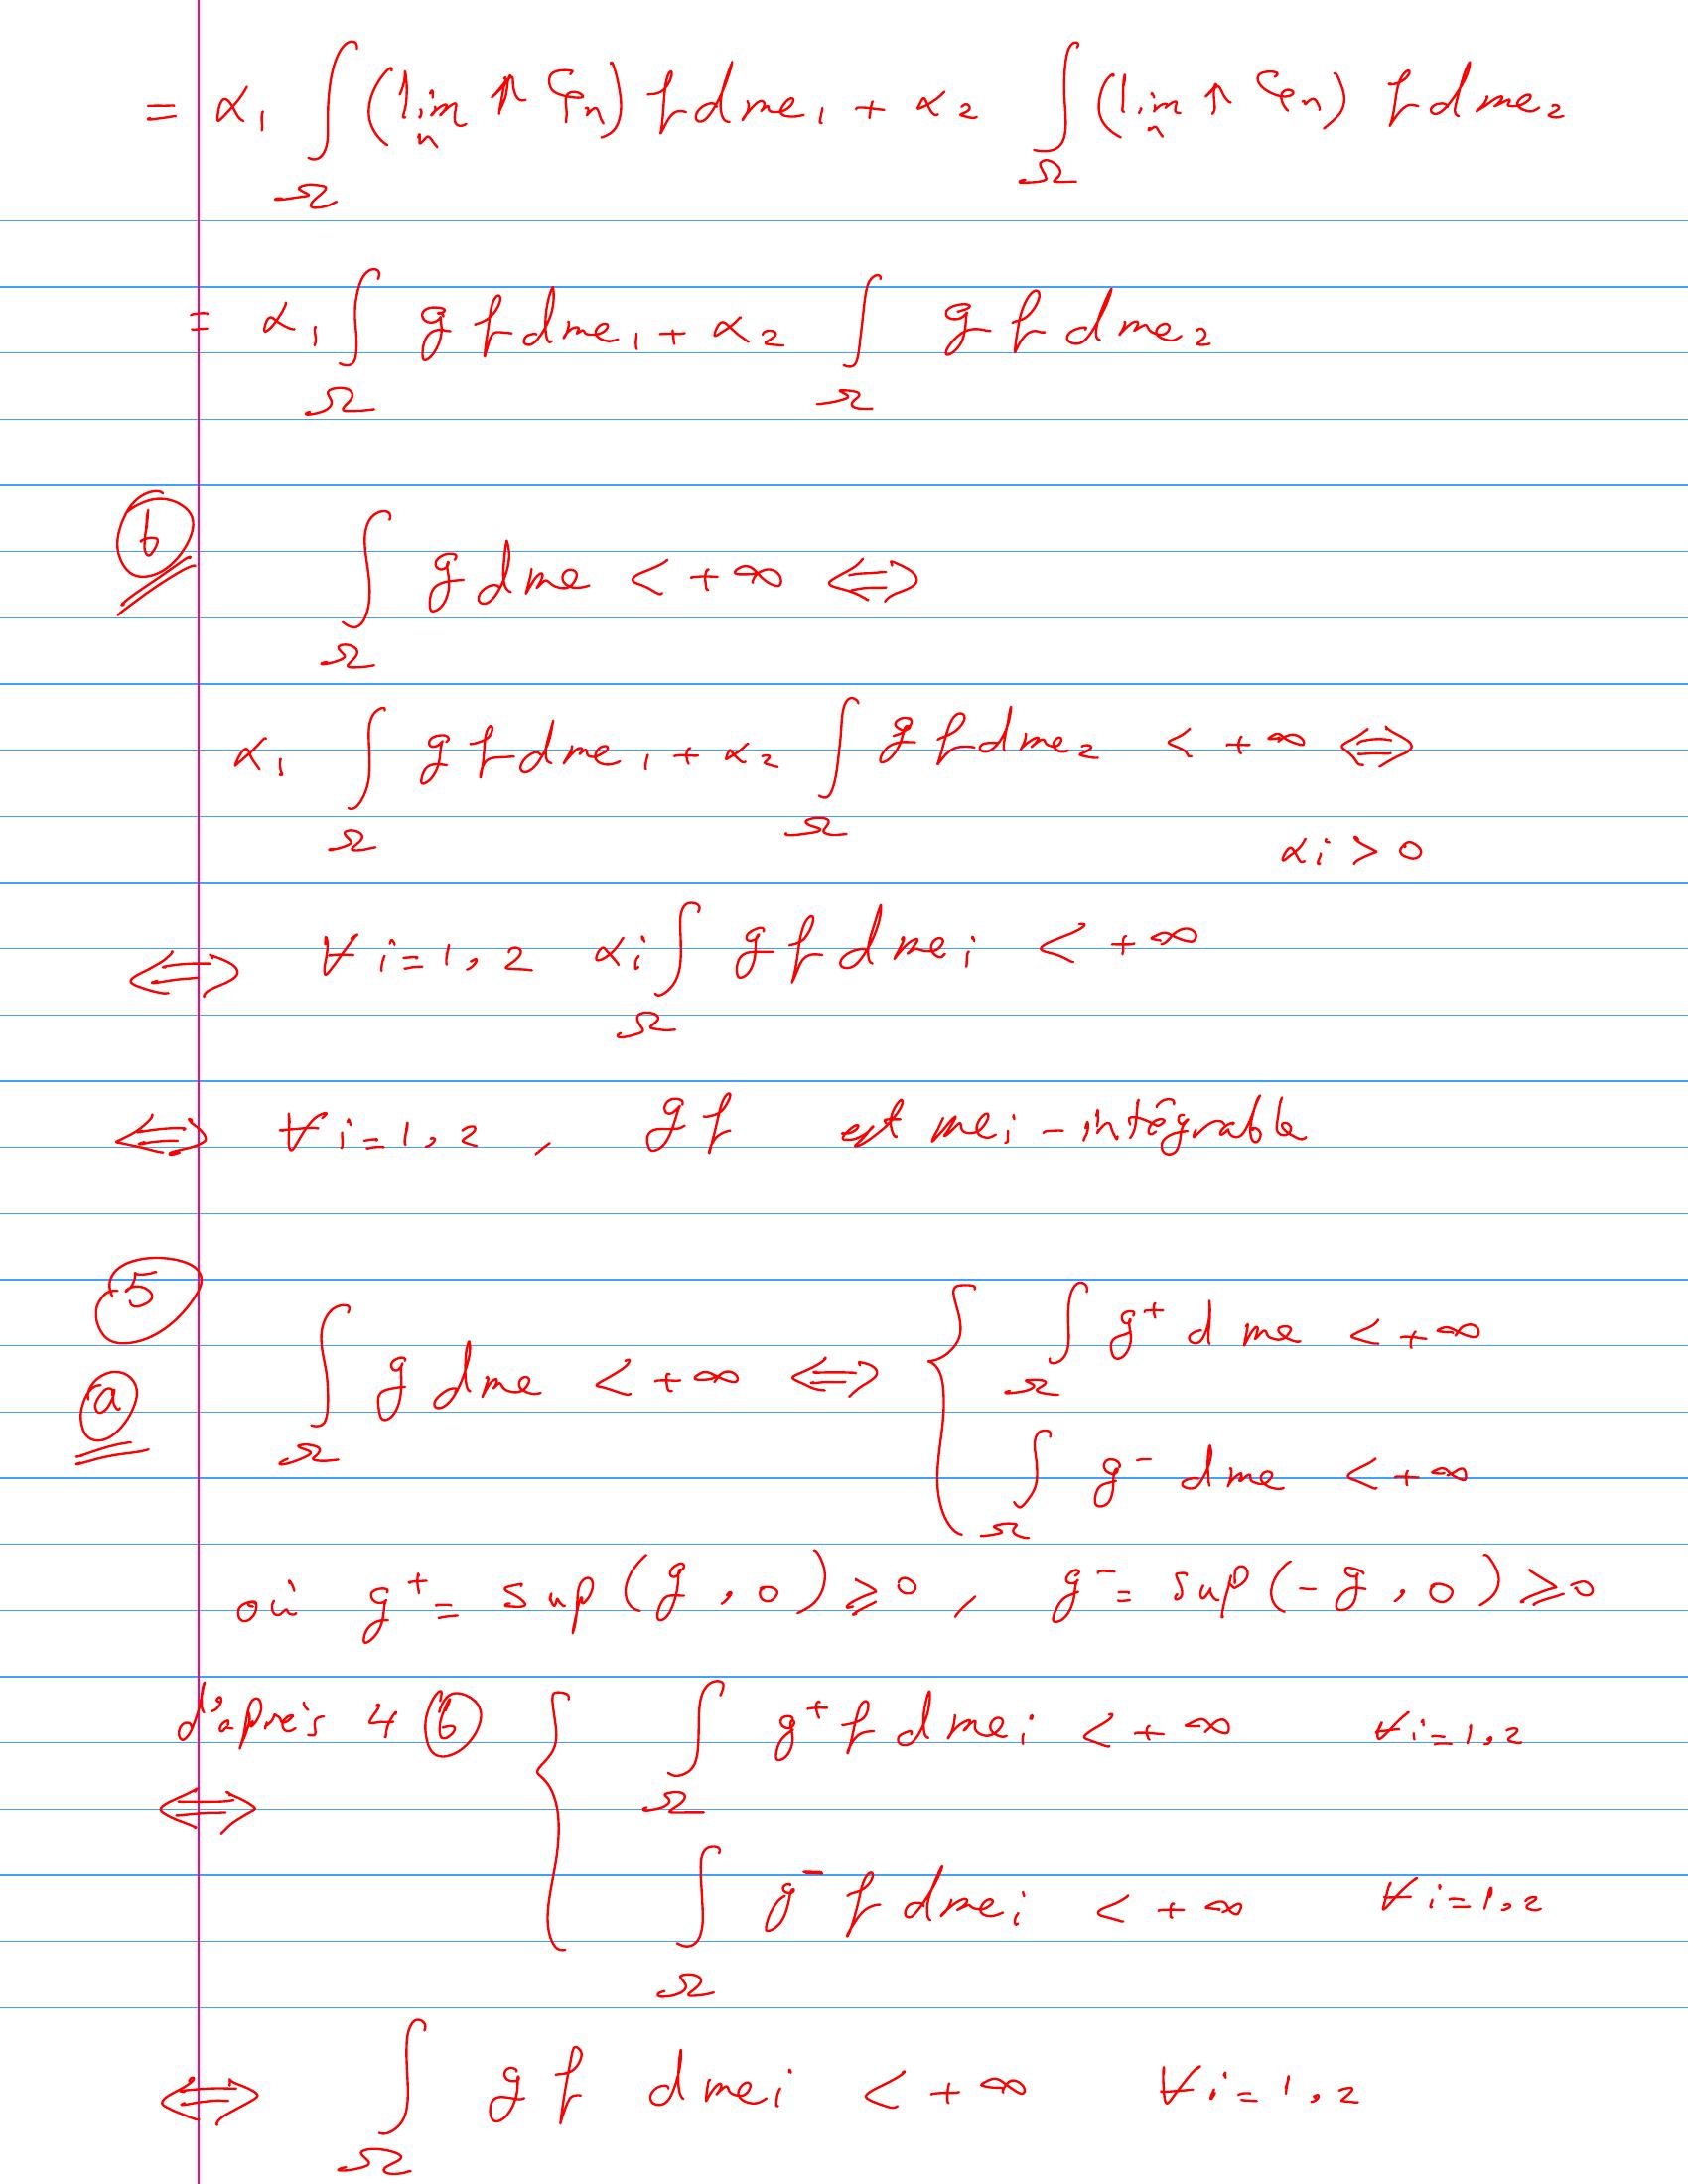 = α₁ ∫_Ω (lim_n ↑ φ_n) f dme₁ + α₂ ∫_Ω (lim_n ↑ φ_n) f dme₂
= α₁ ∫_Ω g f dme₁ + α₂ ∫_Ω g f dme₂
b ∫_Ω g dme < +∞ ⟺
α₁ ∫_Ω g f dme₁ + α₂ ∫_Ω g f dme₂ < +∞ ⟺
αi > 0
⟺ ∀ i=1,2 αi ∫_Ω g f dmei < +∞
⟺ ∀ i=1,2 , g f est mei - intégrable
5
a ∫_Ω g dme < +∞ ⟺ { ∫_Ω g⁺ dme < +∞
∫_Ω g⁻ dme < +∞
où g⁺ = sup(g, 0) ⩾ 0 , g⁻ = sup(-g, 0) ⩾ 0
d'après 4 b { ∫_Ω g⁺ f dmei < +∞ ∀ i=1,2
⟺
∫_Ω g⁻ f dmei < +∞ ∀ i=1,2
⟺ ∫_Ω g f dmei < +∞ ∀ i=1,2